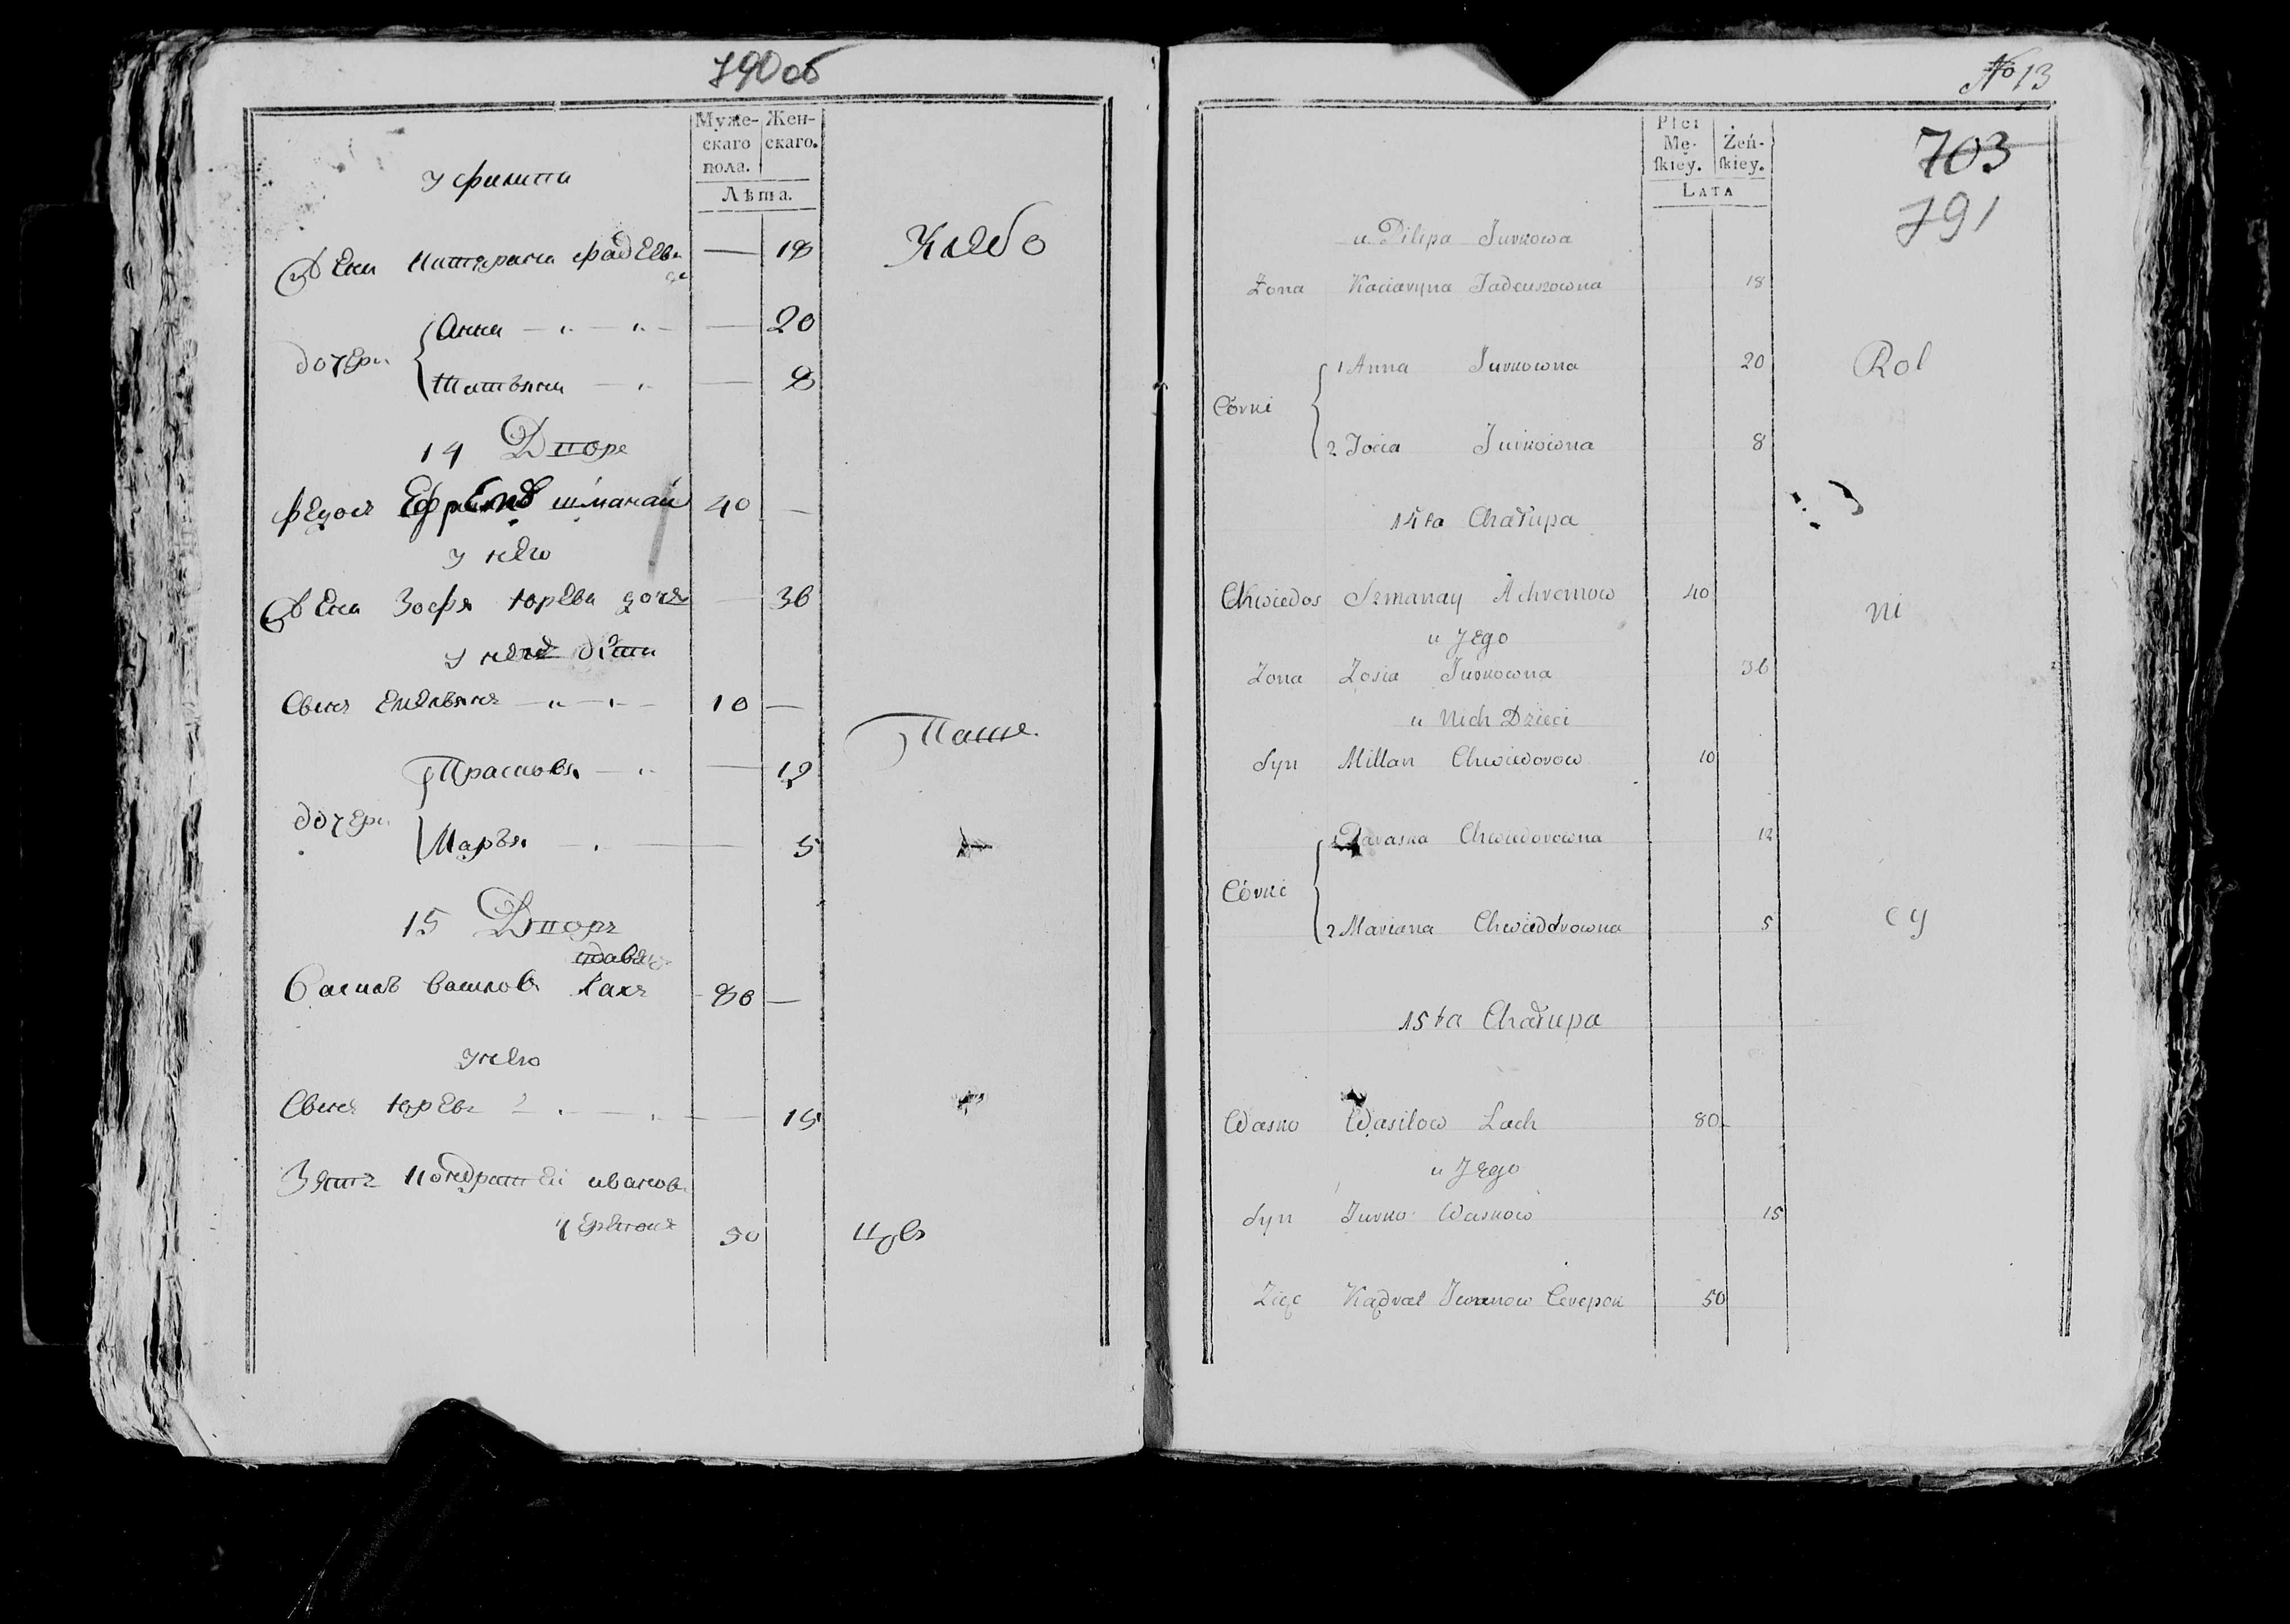 790 об
Муже-
скаго
пола.
Жен-
скаго.
Лѣта.
у филипа
Жена катярина фадѣева — 18
Хлебо
дочери
Анна — „ — „ — — 20
Татьяна — „ — 8
14 Дворъ
шманай 40 —
у него
Жена Зофя юрева дочь — 36
у нихъ дети
Сынъ Емельянъ — „ — „ — 10 —
Паше
дочери
Прасковя — „ — 12
Марья — „ — 5
15 Дворъ
Васил василовъ Лахъ 80 —
у него
Сынъ юревъ — „ — „ — 15
Зять Кондратей иванов
50
№ 13
703
791
Płci
Mę-
ſkiey.
Żeń-
ſkiey.
LATA
u Pilipa Jurkowa
Żona Kaciaryna Tadeuszowna 18
Córki
1 Anna Jurkowna 20
Rol
2 Jocia Jurkowna 8
14ta Chałupa
Chwiedos Szmanay Achremow 40
ni
u Jego
Żona Zosia Jurkowna 36
u Nich Dzieci
Syn Millan Chwiedorow 10
Córki
1 Paraska Chwiedorowna 12
2 Mariana Chwiedorowna 5
cy
15ta Chałupa
Wasko Wasilow Lach 80
u Jego
Syn Jurko Waskow 15
Zięc Kądrat Iwanow Cerepok 50